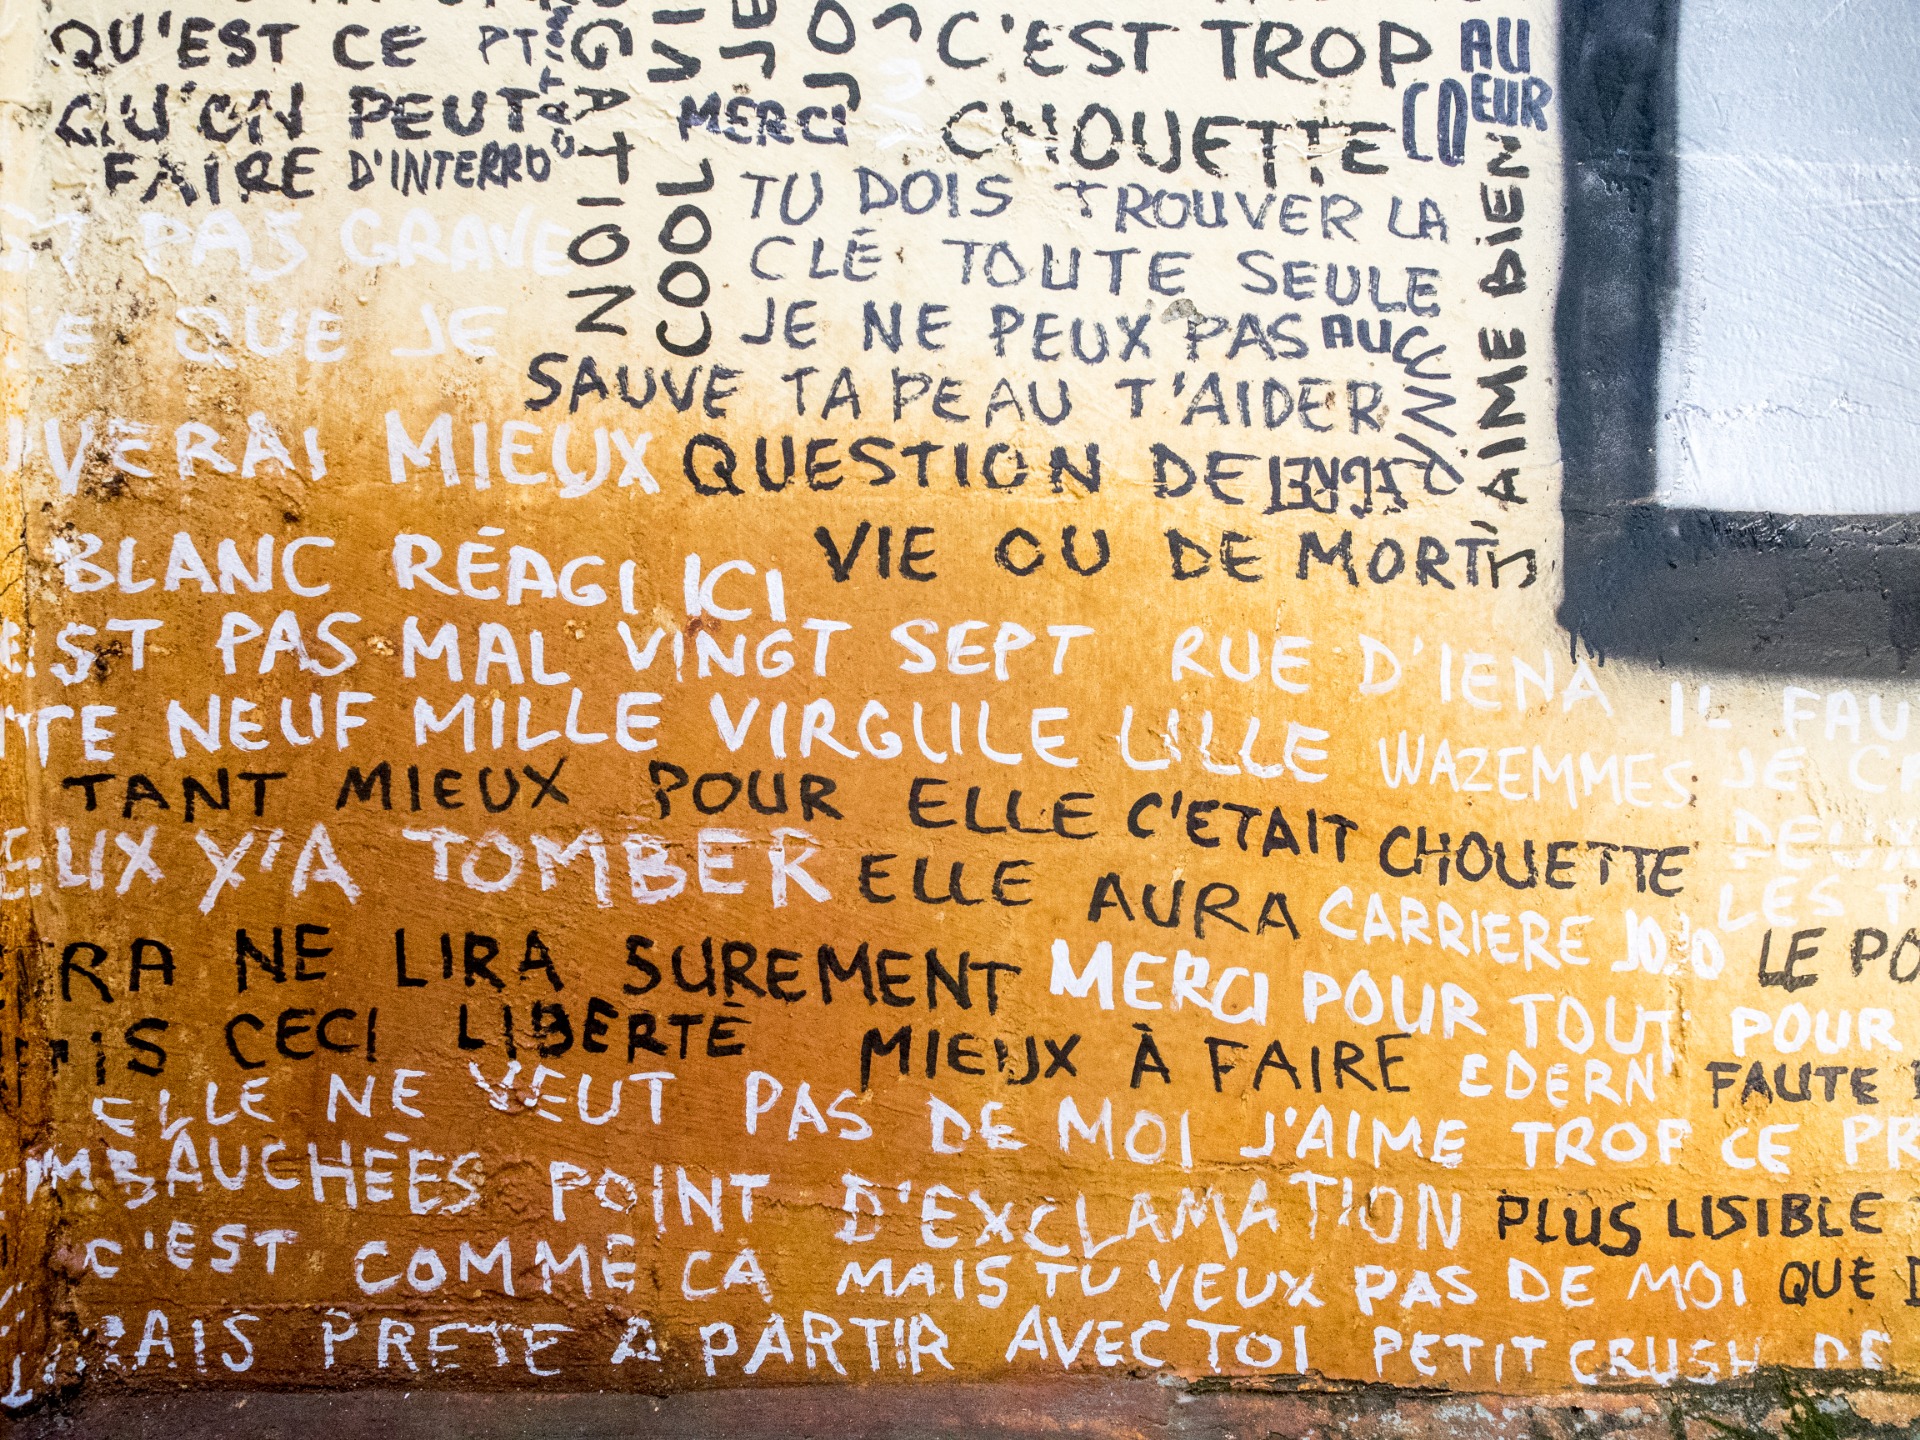 QU'EST CE
QU'ON PEUT
FAIRE D'INTERRO
GATION
COOL
MERCI
C'EST TROP
CHOUETTE
AU
COEUR
J'AIME BIEN
PAS GRAVE
QUE JE
VERAI MIEUX
TU DOIS TROUVER LA
CLÉ TOUTE SEULE
JE NE PEUX PAS AU
PINCE
SAUVE TA PEAU T'AIDER
QUESTION DE
VIE OU DE MORT
BLANC RÉAGI ICI
EST PAS MAL VINGT SEPT RUE D'IENA IL FAU
TE NEUF MILLE VIRGULE LILLE WAZEMMES JE
TANT MIEUX POUR ELLE C'ETAIT CHOUETTE DEUX
EUX Y'A TOMBER ELLE AURA CARRIERE JOJO LES
RA NE LIRA SUREMENT MERCI POUR TOUT LE PO
IS CECI LIBERTÉ MIEUX À FAIRE EDERN POUR
ELLE NE VEUT PAS DE MOI J'AIME TROP CE PR
FAUTE
MBAUCHÉES POINT D'EXCLAMATION PLUS LISIBLE
C'EST COMME CA MAIS TU VEUX PAS DE MOI QUE D
RAIS PRETE A PARTIR AVEC TOI PETIT CRUSH DE